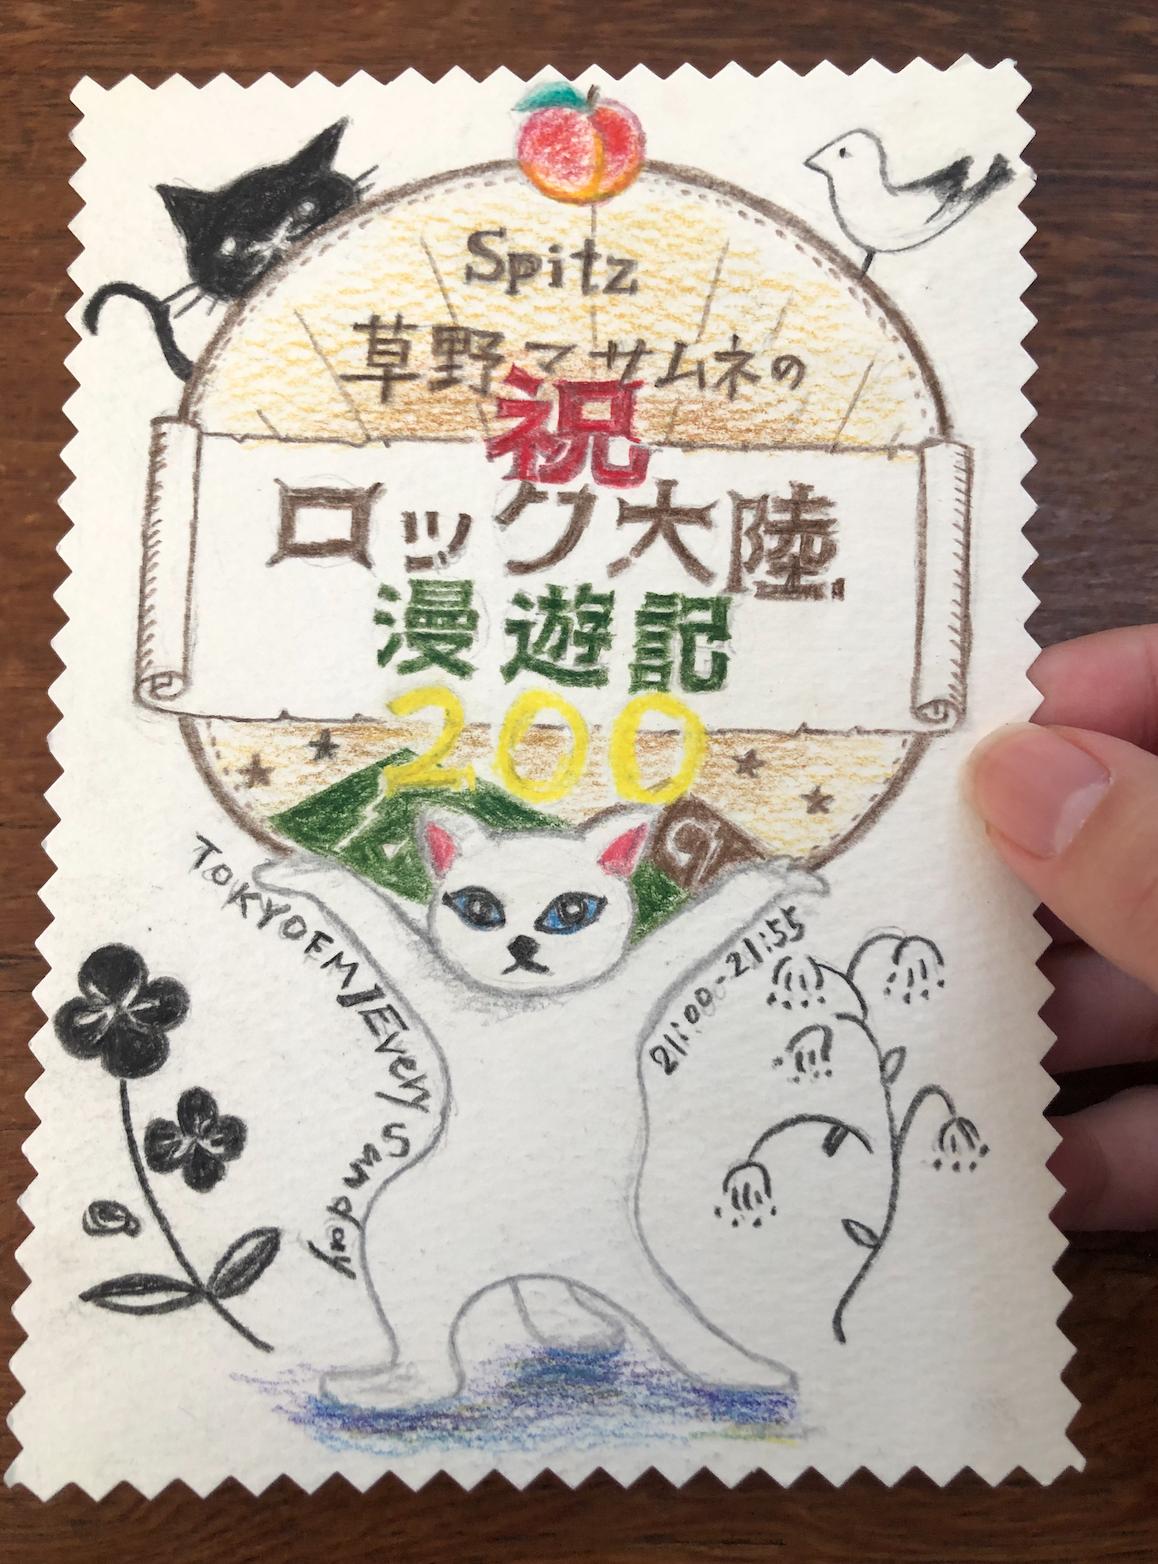 Spitz
草野マサムネの
祝
ロック大陸
漫遊記
200
TOKYOFM/Every Sunday
21:00-21:55